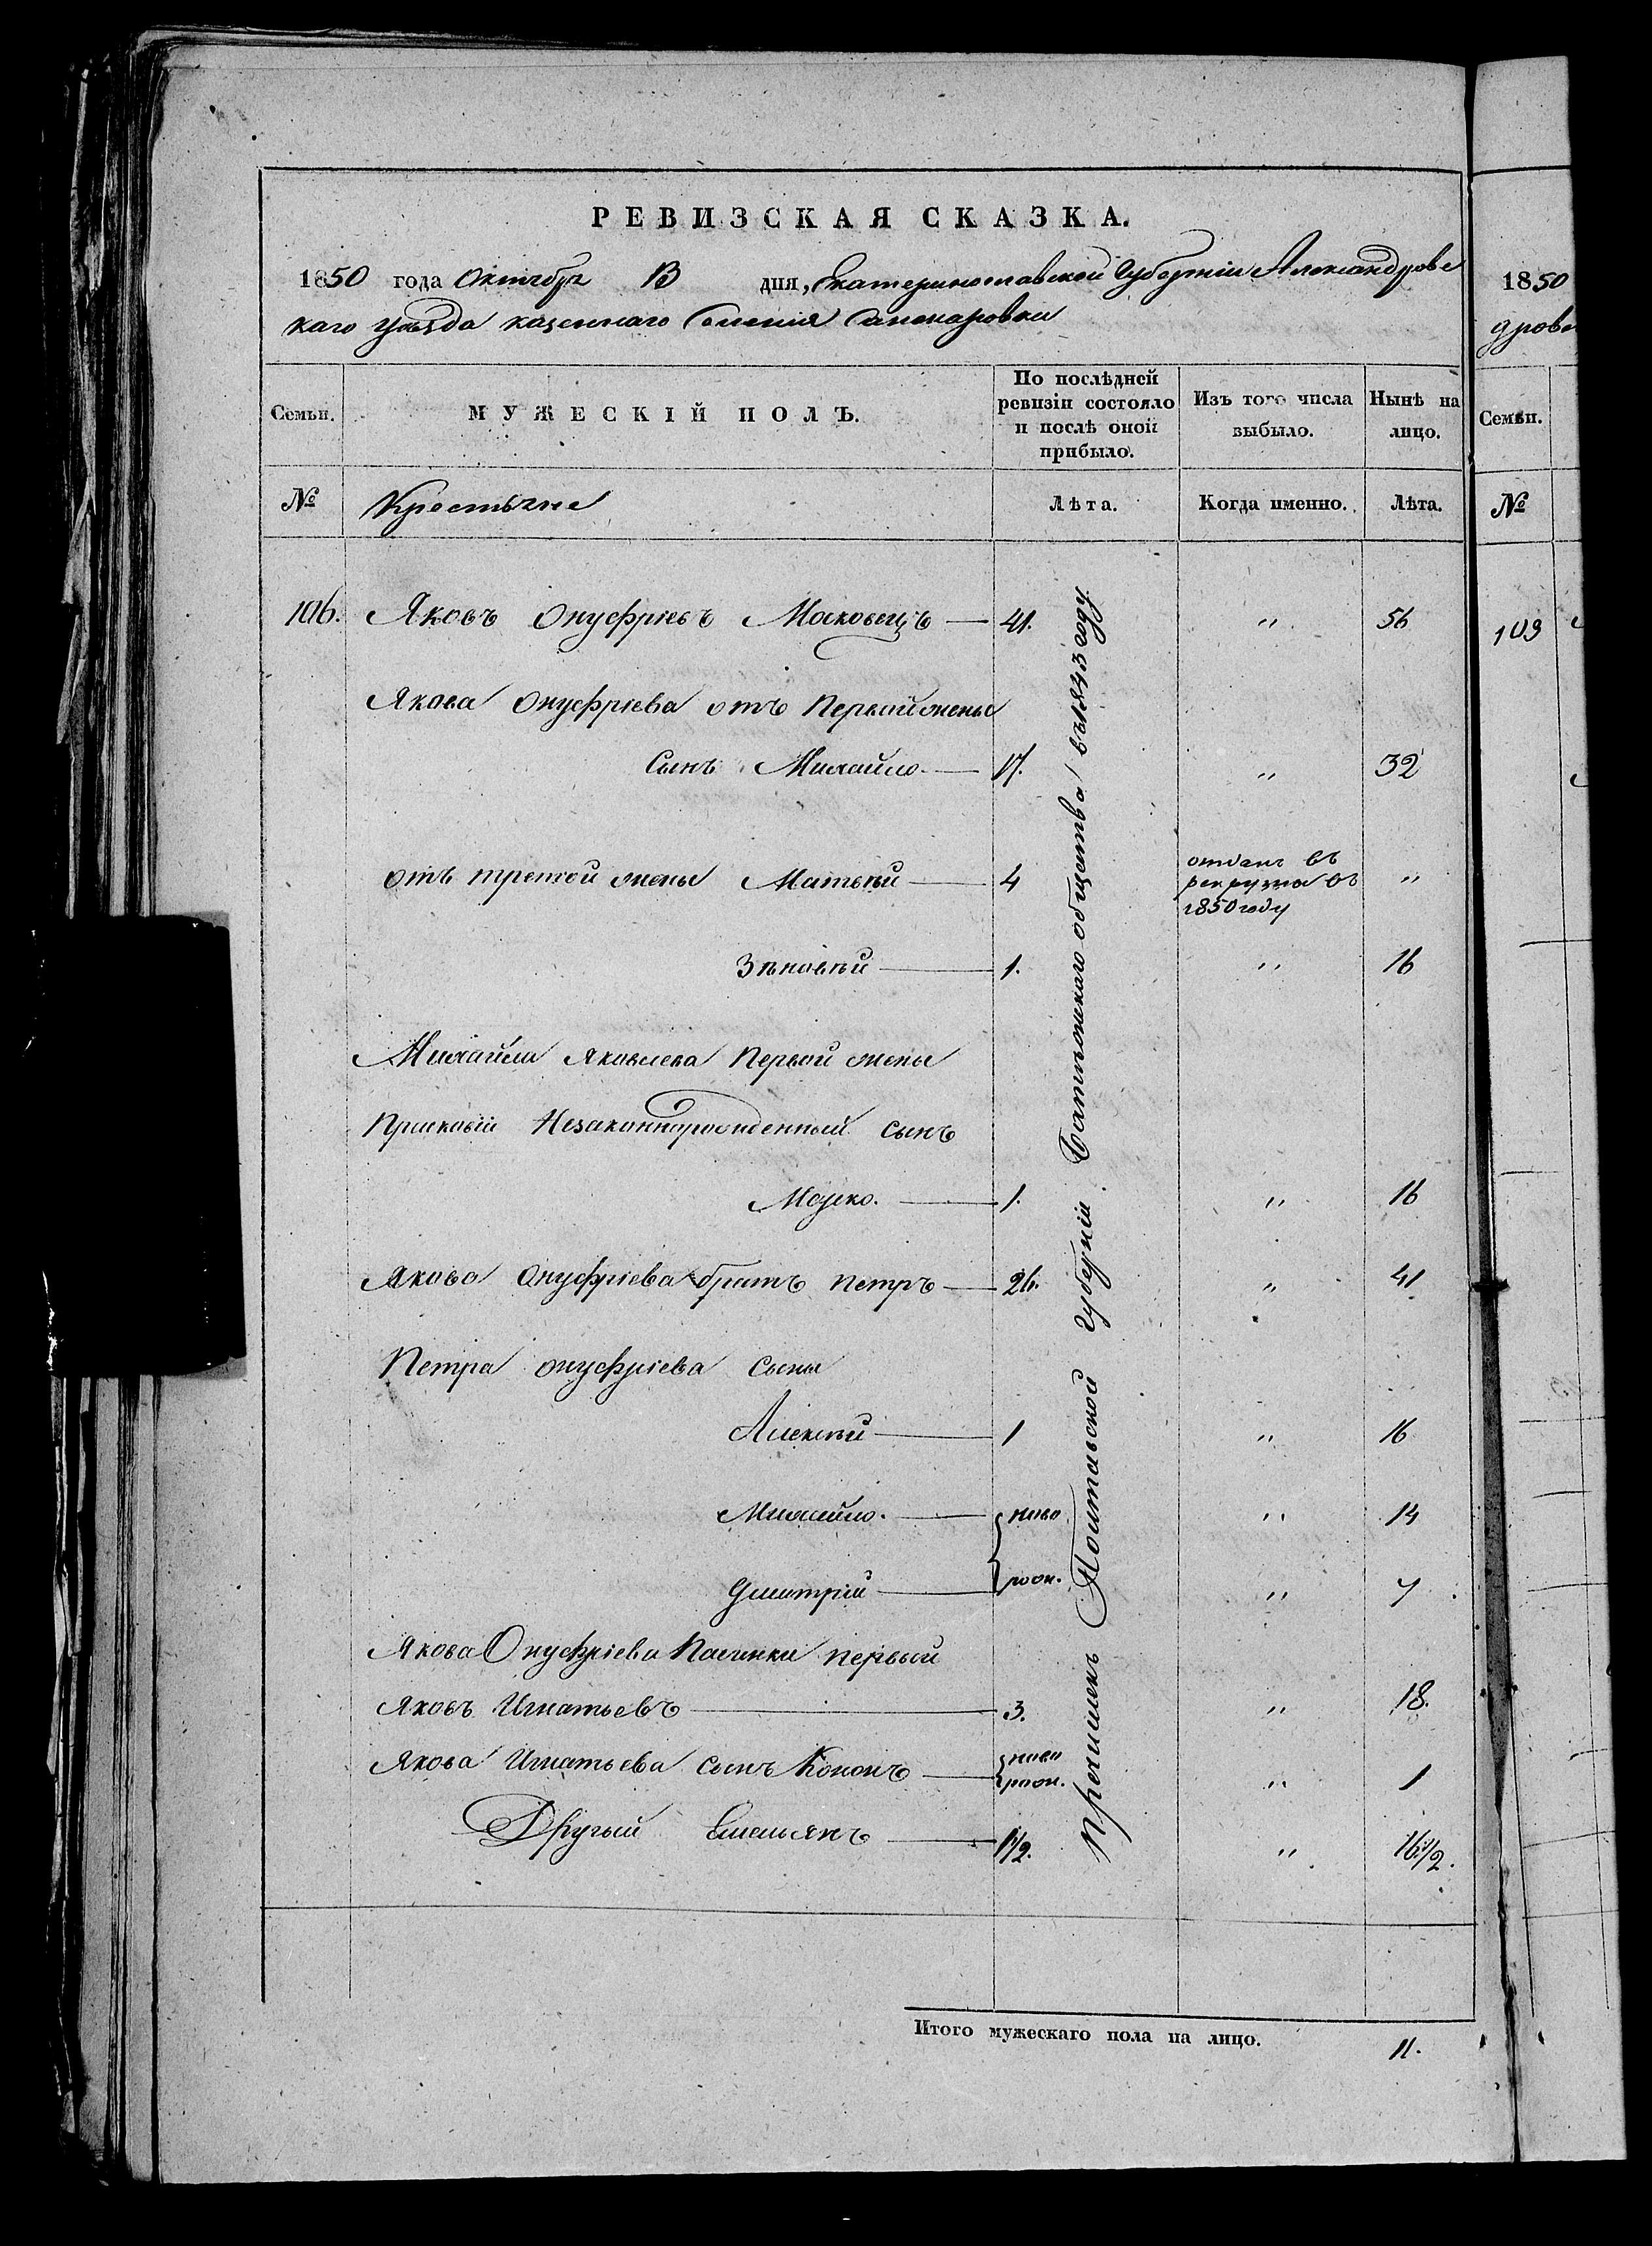 РЕВИЗСКАЯ СКАЗКА.
1850 года Октября 13 дня, Екатеринославской Губерніи Александровс
каго уѣзда казеннаго селенія
Семьи.
МУЖЕСКІЙ ПОЛЪ.
По послѣдней ревизіи состояло и послѣ оной прибыло.
Изъ того числа выбыло.
Нынѣ на лицо.
№
Крестьяне
Лѣта.
Когда именно.
Лѣта.
106. Яковъ Онуфріевъ Московецъ — 41. " 56
Якова Онуфріева отъ первой жены
сынъ Михайло — 17. " 32
отъ третой жены Матвѣй — 4 отданъ въ рекруты въ 1850 году "
Зѣновѣй — 1. " 16
Михайли Яковлева первой жены
Присковіи Незаконнорожденный сынъ
— 1. " 16
Якова Онуфріева братъ Петръ — 26. " 41
Петра Онуфріева сыны
Алексѣй — 1 " 16
Михайло. — ново " 14
Дмитрій — рож. " 7
Якова Онуфріева Пасинки первый
Яковъ Игнатьевъ — 3. " 18.
Якова Игнатьева сынъ Кононъ — ново рож. " 1
Другый Емельянъ — 1/2. " 16 1/2.
Причисленъ Полтавской Губерніи общества въ 1843 году
Итого мужескаго пола на лицо. 11.
1850
дров
Семьи.
№
109